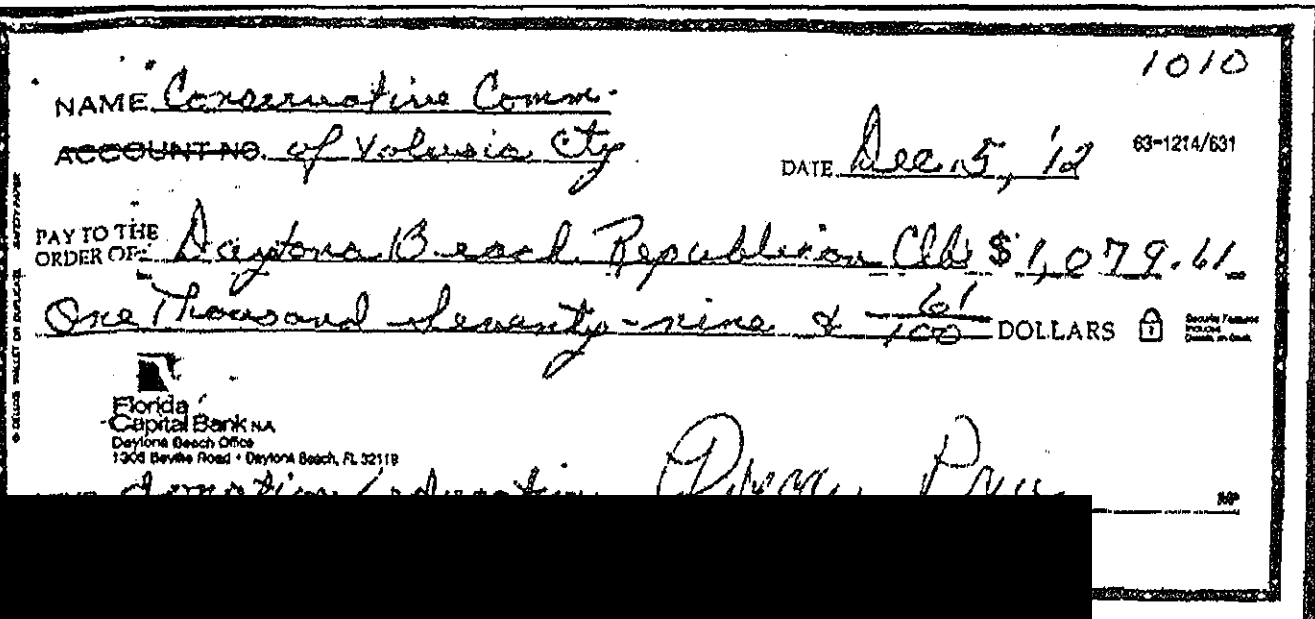 1010
NAME Conservative Comm.
ACCOUNT NO. of Volusia Cty
DATE Dec. 5, '12 63-1214/631
PAY TO THE
ORDER OF: Daytona Beach Republican Club $ 1,079.61
One Thousand Seventy-nine & 61/100 DOLLARS
Florida
Capital Bank N.A.
Daytona Beach Office
Road • Daytona Beach, FL 32118
MP